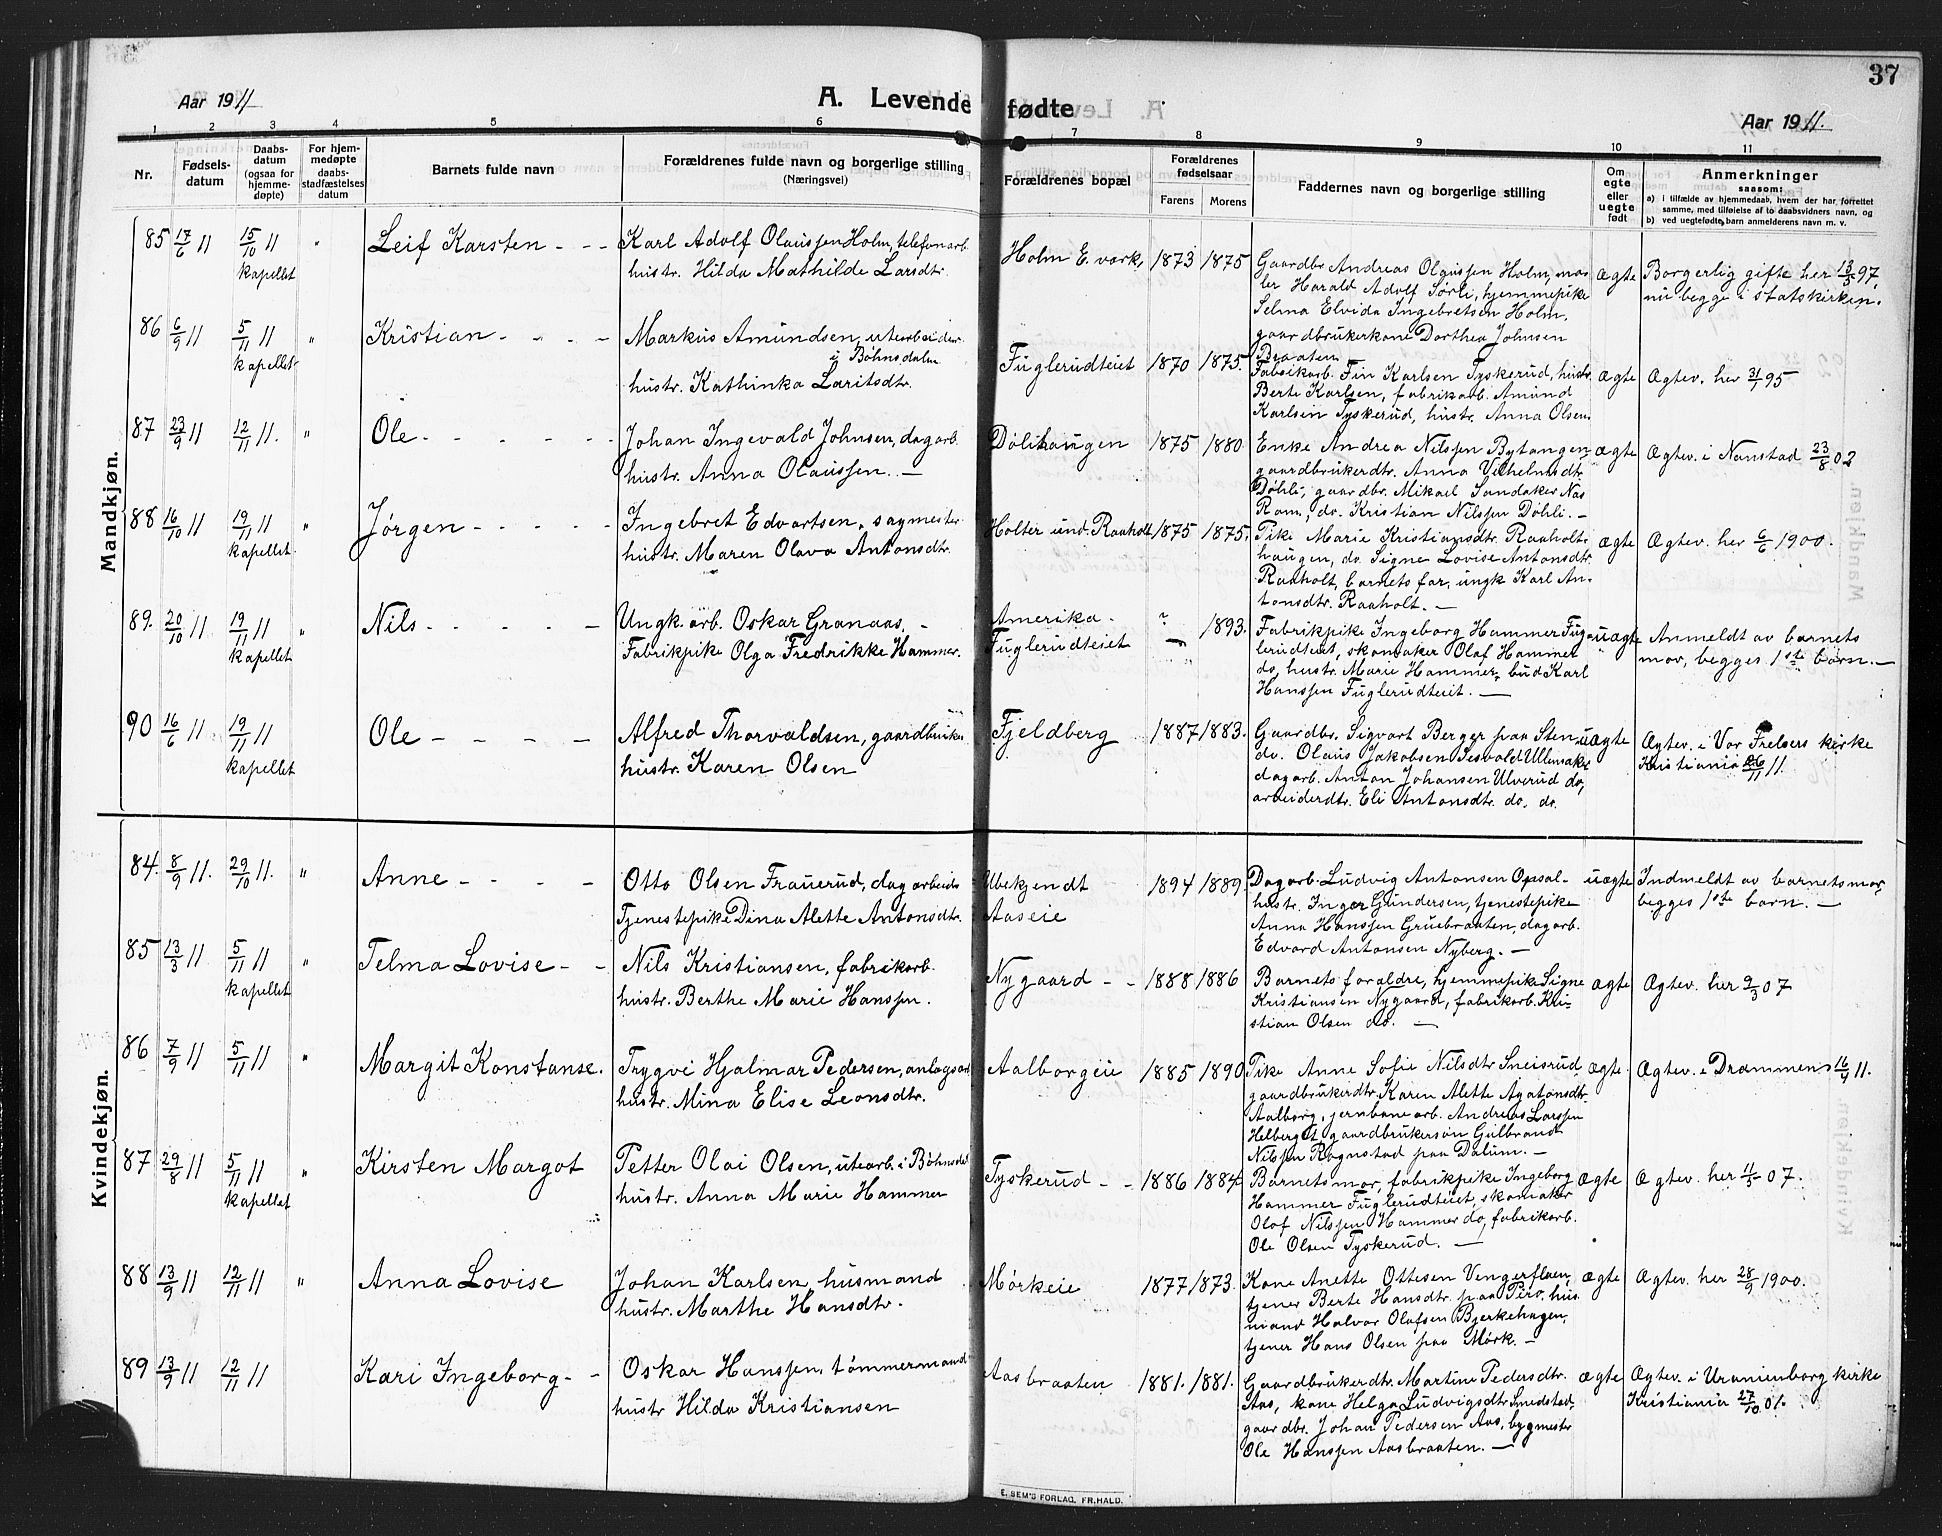 37
Aar 1911
A. Levende fødte
Aar 1911.
1 2 3 4 5 6 7 8 9 10 11
Nr.
Fødsels-
datum
Daabs-
datum
(ogsaa for
hjemme-
døpte)
For hjem-
medøpte
daabs-
stadfæstelses
datum
Barnets fulde navn
Forældrenes fulde navn og borgerlige stilling
(Næringsvei)
Forældrenes bopæl
Forældrenes
fødselsaar
Farens Morens
Faddernes navn og borgerlige stilling
Om
egte
eller
uegte
født
Anmerkninger
saasom:
a) i tilfælde av hjemmedaab, hvem der har forrettet
samme, med tilføielse af to daabsvidners navn, og
b) ved uegtefødte, barn anmelderens navn m. v.
Mandkjøn.
85 17/6 11 15/10 11 " Leif Karsten - - -
kapellet
Karl Adolf Olaussen Holm, telefonarb.
hustr. Hilda Mathilde Larsdtr.
Holm E. vərk, 1873 1875
Gaardbr. Andreas Olaussen Holm, ma-
ler Harald Adolf Sørli, hjemmepike
Selma Elvida Ingebretsen Holm,
gaardbrukerkone Dorthea Johnsen
Braaten
ægte
Borgerlig gifte her 13/5 97,
nu begge i statskirken.
86 6/9 11 5/11 11 " Kristian - - - -
kapellet
Markus Amundsen, utearbeider
i Bøhnsdalen
hustr. Kathinka Lauritsdtr.
Fuglerudteiet 1870 1875.
Fabrikarb. Fin Karlsen Tyskerud, hustr.
Berte Karlsen, fabrikarb. Amund
Karlsen Tyskerud, hustr. Anna Olsen
ægte
Ægtev. her 31/1 95
87 23/9 11 12/11 11. " Ole - - - - -
Johan Ingevald Johnsen, dagarb.
hustr. Anna Olaussen. —
Dølihaugen 1875 1880
Enke Andrea Nilssen Bytangen
gaardbrukerdtr. Anna Vilhelmsdtr.
Døhli, gaardbr. Mikael Sandaker Nas
Rom, do. Kristian Nilssen Døhli. —
ægte
Ægtev. i Nanstad 23/8 02
88 16/10 11 19/11 11 " Jørgen - - - - -
kapellet.
Ingebret Edvartsen, sagmester
hustr. Maren Olava Antonsdtr.
Holter und. Raaholt 1875 1875.
Pike Marie Kristiansdtr. Raaholt-
haugen, do. Signe Lovise Antonsdtr.
Raaholt, barnets far, ungk Karl An-
tonsdtr. Raaholt. —
ægte
Ægtev. her 6/6 1900.
89. 20/10 11 19/11 11 " Nils - - - - -
kapellet
Ungk. arb. Oskar Granaas, -
Fabrikpike Olga Fredrikke Hammer.
Amerika. ?
Fuglerudteiet — 1893.
Fabrikpike Ingeborg Hammer Fug-
lerudteiet, skomaker Olaf Hammer
do, hustr. Marie Hammer, bud Karl
Hanssen Fuglerudteiet. —
uægte
Anmeldt av barnets
mor, begges 1ste barn. —
90 16/6 11 19/11 11 Ole - - - -
kapellet
Alfred Thorvaldsen, gaardbruker
hustr. Karen Olsen
Fjeldberg 1887 1883.
Gaardbr. Sigvart Berger paa Sten
do. Olaus Jakobsen Sesvold Ullensaker
dagarb. Anton Johansen Ulverud do,
arbeiderdtr. Eli Antonsdtr. do. do.
uægte
Ægtev. i Vor Frelsers kirke
Kristiania 26/11 11.
Kvindekjøn.
84. 8/9 11. 29/10 11. " Anne - - - -
Otto Olsen Frauerud, dagarbeid.
Tjenestepike Dina Alette Antonsdtr.
Ubekjendt 1894 1889.
Aaseie
Dagarb. Ludvig Antonsen Opsal-
hustr. Inger Gundersen, tjenestepike
Anna Hanssen Gruebraaten, dagarb.
Edvard Antonsen Nyberg. —
uægte
Indmeldt av barnets mor,
begges 1ste barn. —
85 13/3 11 5/11 11 " Telma Lovise - -
kapellet
Nils Kristiansen, fabrikarb.
hustr. Berthe Marie Hanssen.
Nygaard - - 1888 1886
Barnets foraldre, hjemmepike Signe
Kristiansen Nygaard, fabrikarb. Kri-
stian Olsen do. —
ægte
Ægtev. her 2/3 07
86 7/9 11 5/11 11 " Margit Konstanse.
Trygve Hjalmar Pedersen, anlægsarb.
hustr. Mina Elise Leonsdtr.
Aalborgeie 1885 1890
Pike Anne Sofie Nilsdtr Sneisrud
gaardbrukerdtr Karen Alette Agatonsdtr.
Aalborg, jernbanearb. Andreas Larssen
Helberget, gaardbrukersøn Gulbrand
Nilssen Rognstad paa Dalum. —
ægte.
Ægtev. i Drammens 16/4 11.
87 29/8 11 5/11 11 " Kirsten Margot
kapellet
Petter Olai Olsen, utearb. i Bøhnsdal
hustr. Anna Marie Hammer
Tyskerud - - 1886 1884
Barnets mor, fabrikpike Ingeborg
Hammer Fuglerudteiet, skomaker
Olaf Nilssen Hammer do, fabrikarb.
Ole Olsen Tyskerud. —
ægte
Ægtev. her 11/5 07.
88 13/9 11 12/11 11 " Anna Lovise
Johan Karlsen, husmand
hustr. Marthe Hansdtr.
Mørkeie 1877 1873.
Kone Anette Ottesen Vengerflaen,
tjener Berte Hansdtr. paa Pero, hus-
mand Halvor Olafsen Bjerkehagen,
tjener Hans Olsen paa Mørk. —
ægte
Ægtev. her 28/9 1900.
89 13/9 11 12/11 11 Kari Ingeborg - -
Oskar Hanssen, tømmermand
hustr Hilda Kristiansen
Aasbraaten 1881. 1881.
Gaardbrukerdtr. Martine Pedersdtr.
Aas, kone Helga Ludvigsdtr Smedstad,
gaardbr. Johan Pedersen Aas, bygmester
Ole Hanssen Aasbraaten. —
ægte
Ægtev. i Uranienborg kirke
Kristiania 27/10 01.
E. SEM'S FORLAG, FR.HALD.